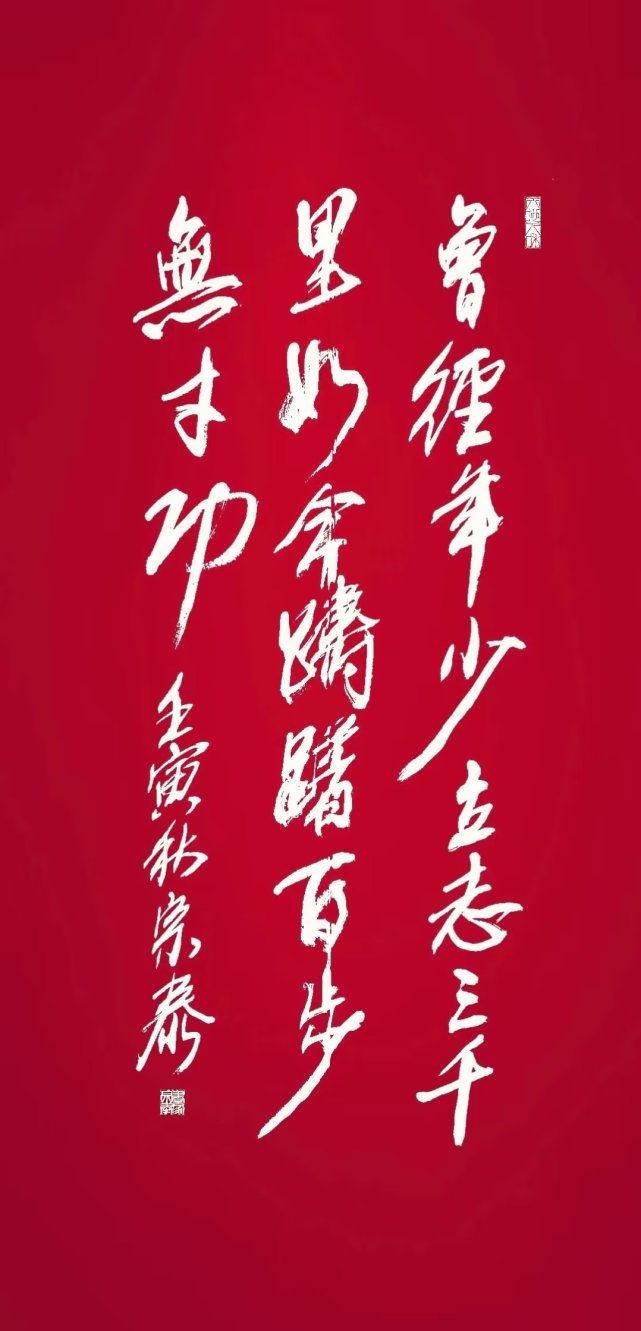 曾經年少立志三千
里如今躊躇百步
無寸功
壬寅秋宗泰